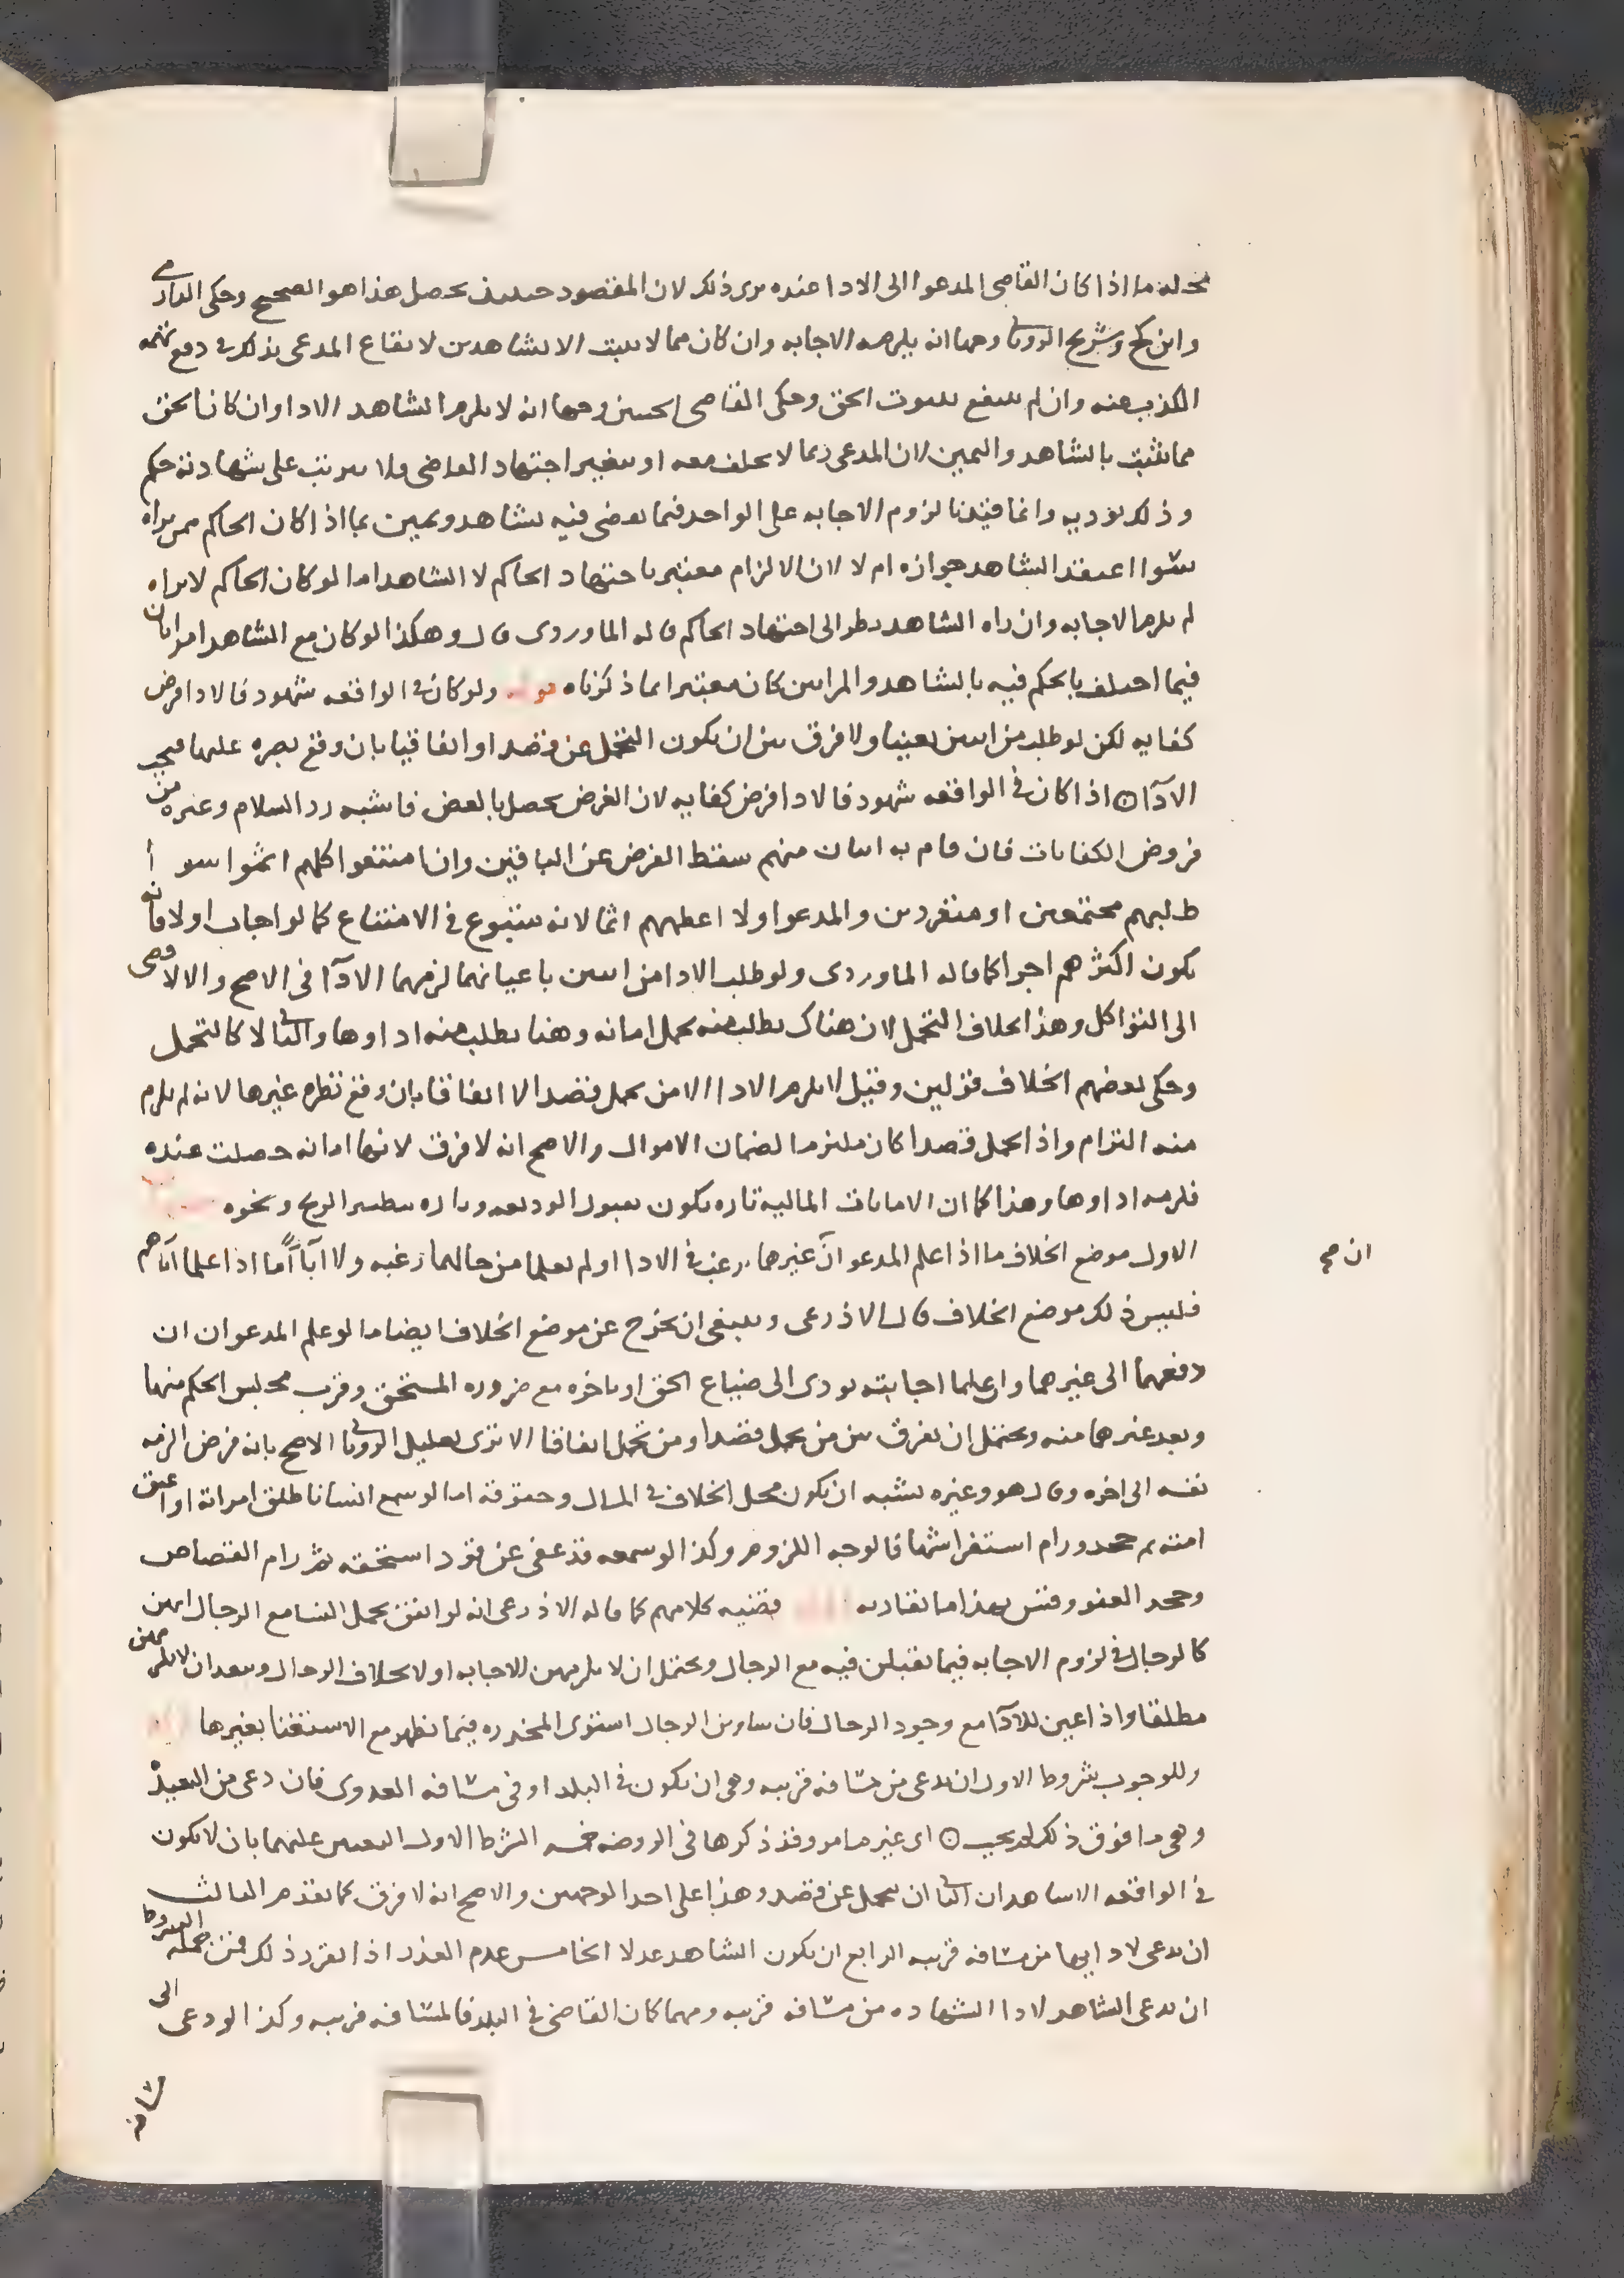 محله ما اذا كان القاضي المدعوا الى الادا عنده يرى ذلك لان المقصود حينئذ يحصل هذا هو الصحيح وحكى الدارمي
وابن كج وشريح الروياني وجها انه يلزمه الاجابه وان كان مما لا يثبت الا بشاهدين لانتفاع المدعي بذلك في دفع تهمة
الكذب عنه وان لم ينتفع بثبوت الحق وحكى القاضي الحسين وجها انه لا يلزم الشاهد الادا وان كان الحق
مما يثبت بالشاهد واليمين لان المدعي ربما لا يحلف معه او يتغير اجتهاد القاضي ولا يترتب على شهادته حكم
وذلك يوديه وانما قيدنا لزوم الاجابه على الواحد فيما يقضى فيه بشاهد ويمين بما اذا كان الحاكم ممن يراه
سوا اعتقد الشاهد جوازه ام لا لان الالزام معتبر باجتهاد الحاكم لا الشاهد اما لو كان الحاكم لا يراه
لم يلزم الاجابه وان راه الشاهد نظرا الى اجتهاد الحاكم قاله الماوردى قال وهكذا لو كان مع الشاهد امراتان
فيما اختلف بالحكم فيه بالشاهد والمراتين كان معتبرا بما ذكرناه ولو كان في الواقعه شهود فالادا فرض
كفايه لكن لو طلب من اثنين تعينا ولا فرق بين ان يكون التحمل عن قصد او اتفاقيا بان وقع بصره عليها فيجب
الادآ اذا كان في الواقعه شهود فالادا فرض كفايه لان الغرض يحصل بالبعض فاشبه رد السلام وغيره من
فروض الكفايات فان قام به اثنان منهم سقط الفرض عن الباقين وان امتنعوا كلهم اثموا سوا
طلبهم مجتمعين او متفردين والمدعوا ولا اعظمهم اثما لانه متبوع في الامتناع كما لو اجاب اولا فانه
يكون اكثرهم اجرا كما قاله الماوردى ولو طلب الادا من اثنين باعيانهما لزمهما الادآ في الاصح والا لافضى
الى التواكل وهذا بخلاف التحمل لان هناك يطلب منه تحمل امانه وهنا يطلب منه اداوها والثاني لا كالتحمل
وحكى بعضهم الخلاف قولين وقيل لا يلزم الادا الا من تحمل قصدا لا اتفاقا بان وقع نظره غيرها لانه لم يلزم
منه التزام واذا تحمل قصدا كان ملتزما لضمان الاموال والاصح انه لا فرق لانها امانه حصلت عنده
فلزمه اداوها وهذا كما ان الامانات الماليه تاره يكون بقبول الوديعه وتاره بتطيير الريح ونحوه
الاول موضع الخلاف ما اذا علم المدعو ان غيرهما يرغب في الادا او لم يعلما من حالهما رغبه ولا ابآ اما اذا علما اباهم
فليس ذلك موضع الخلاف قال الاذرعى وينبغي ان يخرج عن موضع الخلاف ايضا ما لو علم المدعوان ان
دفعهما الى غيرهما وان علما اجابته يودى الى ضياع الحق او تاخره مع ضروره المستحق وقرب مجلس الحكم منهما
وبعد غيرهما منه ويحتمل ان يفرق بين من تحمل قصدا ومن تحمل اتفاقا الا ترى تعليل الروياني الاصح بانه فرض الزمه
نفسه الى اخره وقال هو وغيره يشبه ان يكون محل الخلاف في المال وحقوقه اما لو سمع انسانا طلق امراته او اعتق
امته ثم جحد ورام استفراشها فالوجه اللزوم وكذا لو سمعه قد عفى عن قود استحقه ثم رام القصاص
وجحد العفو وقس بهذا ما يقاربه قضيه كلامهم كما قاله الاذرعى انه لو اتفق تحمل النسا مع الرجال انهن
كالرجال في لزوم الاجابه فيما يقبلن فيه مع الرجال ويحتمل ان لا يلزمهن الاجابه اولا بخلاف الرجال ويبعد ان لا يلزمهن
مطلقا واذا عين للادآ مع وجود الرجال فان ساوين الرجال استوى المخدره فيما يظهر مع الاستغنا بغيرها
وللوجوب شروط الاول ان يدعى من مسافه قريبه وهي ان يكون في البلد او في مسافه العدوى فان دعى من البعيد
وهي ما فوق ذلك لم يجب اى غير ما مر وقد ذكرها في الروضه خمسه الشرط الاول التعيين عليهما بان لا يكون
في الواقعه الا شاهدان الثاني ان يتحمل عن قصد وهذا على احد الوجهين والاصح انه لا فرق كما تقدم الثالث
ان يدعى لادايها من مسافه قريبه الرابع ان يكون الشاهد عدلا الخامس عدم العذر اذا تقرر ذلك فمن جملة الشروط
ان يدعى الشاهد لادا الشهاده من مسافه قريبه ومهما كان القاضي في البلد فالمسافه قريبه وكذا لو دعى الى
مسافه
ان صح